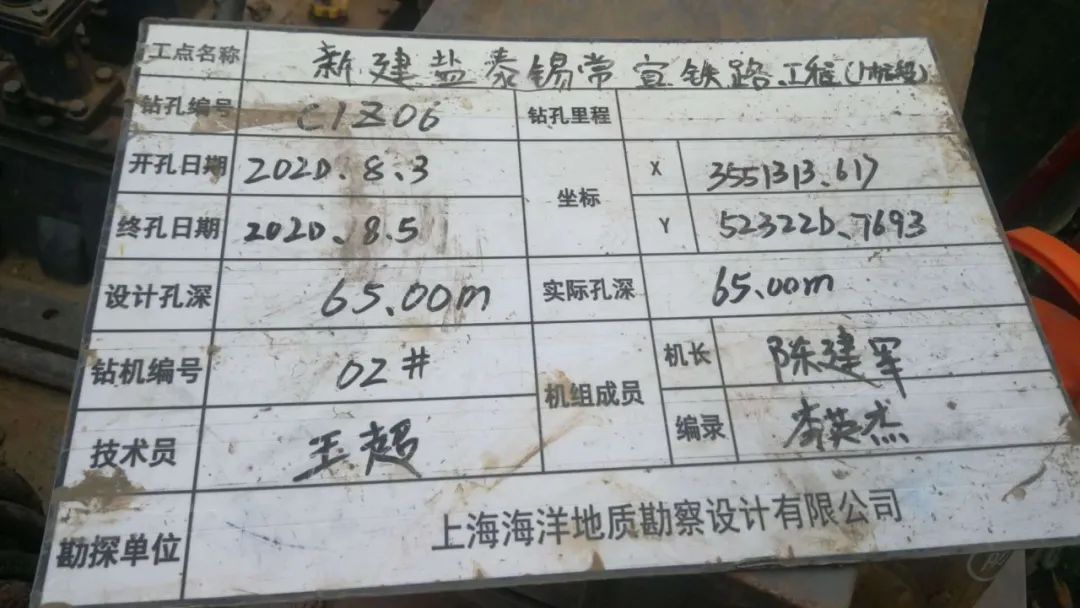 工点名称 新建盐泰锡常宜铁路工程
钻孔编号 C1Z06 钻孔里程
开孔日期 2020.8.3 坐标 X 3551313.617
终孔日期 2020.8.5 Y 523220.7693
设计孔深 65.00m 实际孔深 65.00m
钻机编号 02# 机组成员 机长 陈建军
技术员 王超 编录 李英杰
勘探单位 上海海洋地质勘察设计有限公司